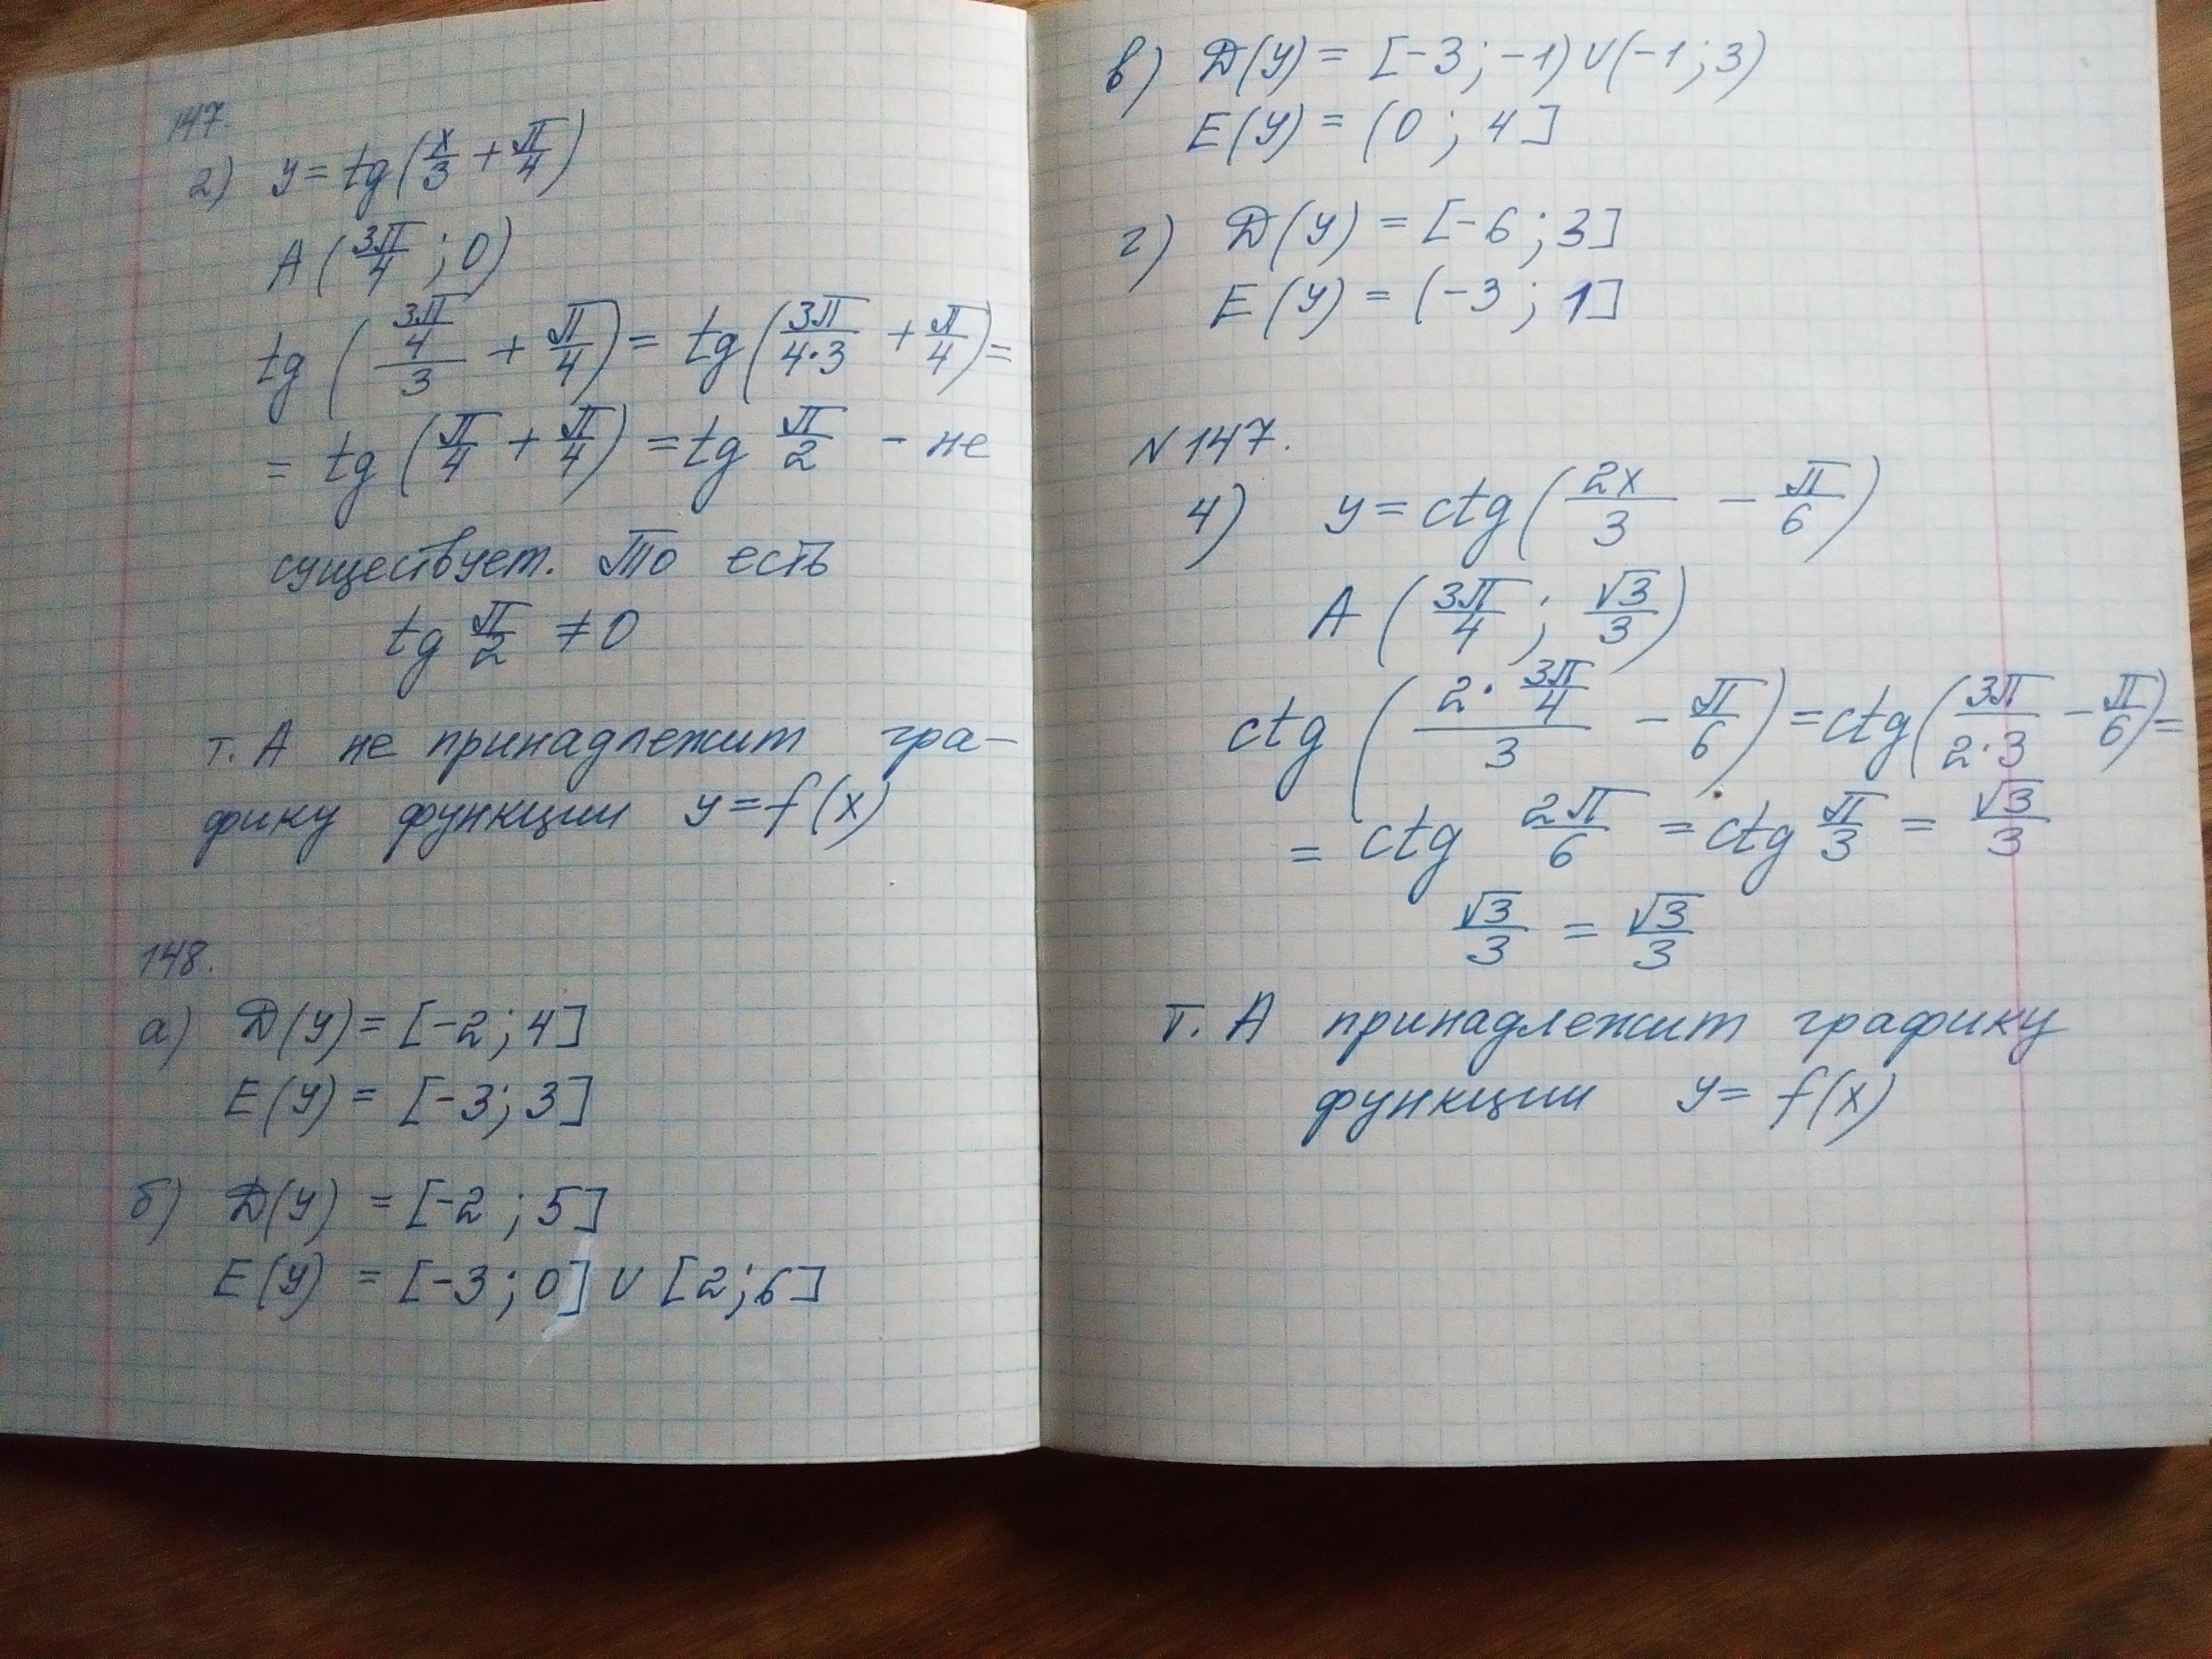 147.
2) y = tg(x/3 + π/4)
A(3π/4 ; 0)
tg((3π/4)/3 + π/4) = tg(3π/(4·3) + π/4) =
= tg(π/4 + π/4) = tg π/2 - не
существует. То есть
tg π/2 ≠ 0
т. А не принадлежит гра-
фику функции y = f(x)
148.
а) D(y) = [-2; 4]
E(y) = [-3; 3]
б) D(y) = [-2 ; 5]
E(y) = [-3 ; 0] ∪ [2; 6]
в) D(y) = [-3 ; -1) ∪ (-1 ; 3)
E(y) = (0 ; 4]
г) D(y) = [-6 ; 3]
E(y) = (-3 ; 1]
N 147.
4) y = ctg(2x/3 - π/6)
A(3π/4 ; √3/3)
ctg((2 · 3π/4)/3 - π/6) = ctg(3π/(2·3) - π/6) =
= ctg 2π/6 = ctg π/3 = √3/3
√3/3 = √3/3
т. А принадлежит графику
функции y = f(x)